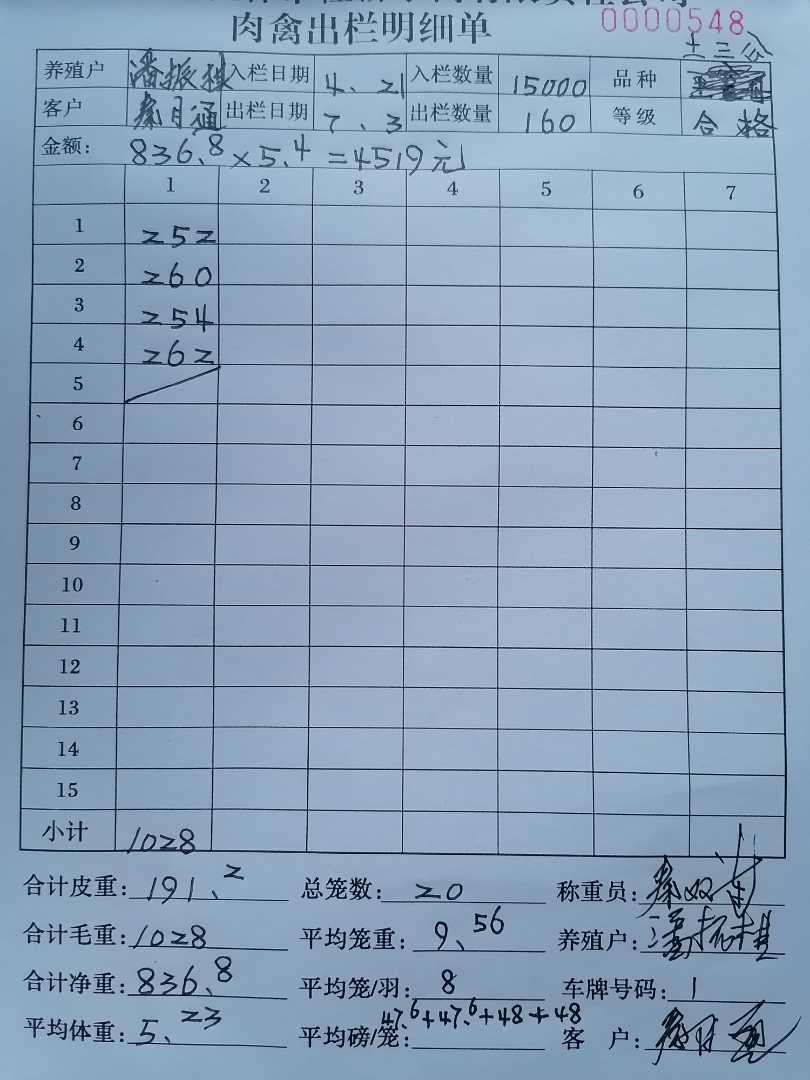 肉禽出栏明细单
0000548
十三公
养殖户 潘振桂 入栏日期 4、21 入栏数量 15000 品种
客户 秦月通 出栏日期 7、3 出栏数量 160 等级 合格
金额: 836.8×5.4=4519元
1 2 3 4 5 6 7
1 252
2 260
3 254
4 262
5
6
7
8
9
10
11
12
13
14
15
小计 1028
合计皮重: 191.2 总笼数: 20 称重员:
合计毛重: 1028 平均笼重: 9.56 养殖户: 潘振桂
合计净重: 836.8 平均笼/羽: 8 车牌号码: 1
平均体重: 5.23 平均磅/笼: 47.6+47.6+48+48 客 户: